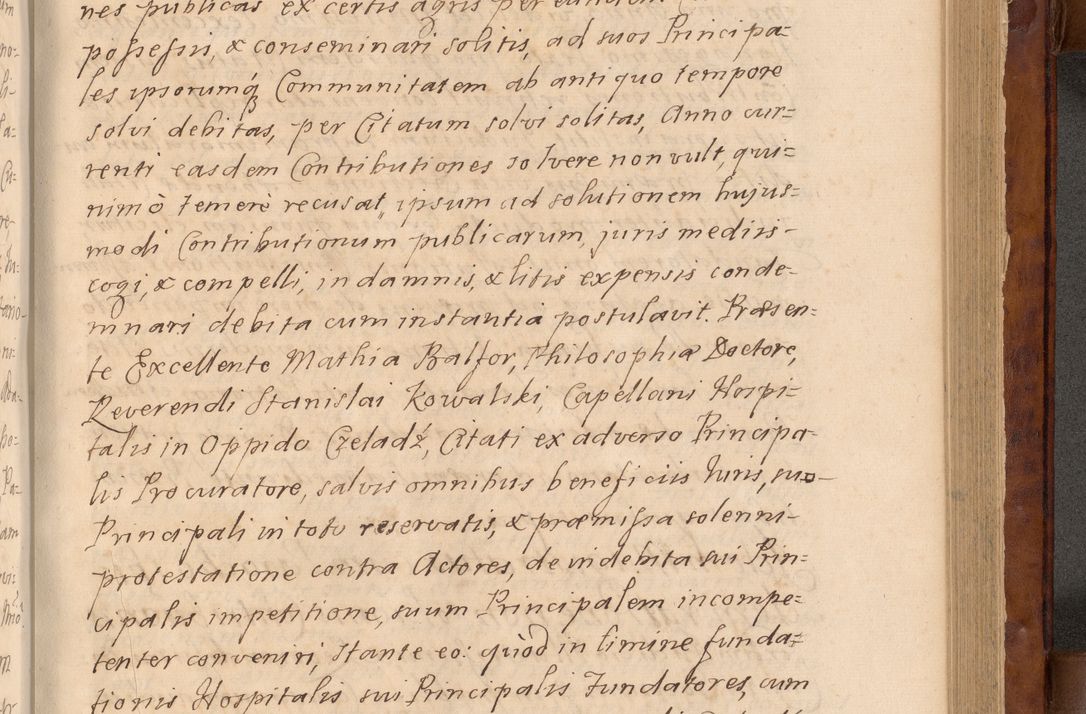 nes publicas ex certis agris per eundem
possessis, & conseminari solitis, ad suos Principa=
les ipsorumq́ Communitatem ab antiquo tempore
solvi debitas, per Citatum solvi solitas, Anno cur=
renti easdem Contributiones solvere non vult, qui=
nimò temerè recusat, ipsum ad solutionem hujus=
modi Contributionum publicarum, juris mediis
cogi, & compelli, in damnis, & litis expensis conde=
mnari debita cum instantia postulavit. Præsen=
te Excellente Mathia Balfor, Philosophiæ Doctore,
Reverendi Stanislai Kowalski, Capellani Hospi=
talis in Oppido Czeladź, Citati ex adverso Principa=
lis Procuratore, salvis omnibus beneficiis Juris, suo
Principali in toto reservatis, & præmissa solenni
protestatione contra Actores, de indebita sui Prin=
cipalis impetitione, suum Principalem incompe=
tenter conveniri, stante eo: quòd in limine funda=
tionis Hospitalis sui Principalis Fundatores, cum